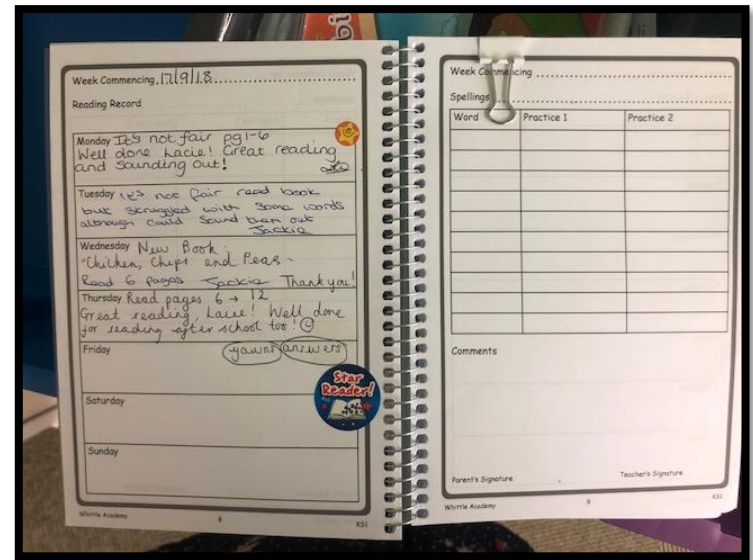 Week Commencing 17/9/18
Reading Record
Monday It's not fair pg1-6
Well done Lacie! Great reading
and sounding out!
Tuesday It's not fair read book
but struggled with some words
although could sound them out
Jackie
Wednesday New Book.
"Chicken, Chips and Peas"
Read 6 pages Jackie Thank you!
Thursday Read pages 6 → 12
Great reading, Lacie! Well done
for reading after school too! ☺
Friday yawns answers
Star
Reader!
Saturday
Sunday
Whittle Academy 8 KS1
Week Commencing
Spellings
Word Practice 1 Practice 2
Comments
Parent's Signature Teacher's Signature
Whittle Academy 9 KS1